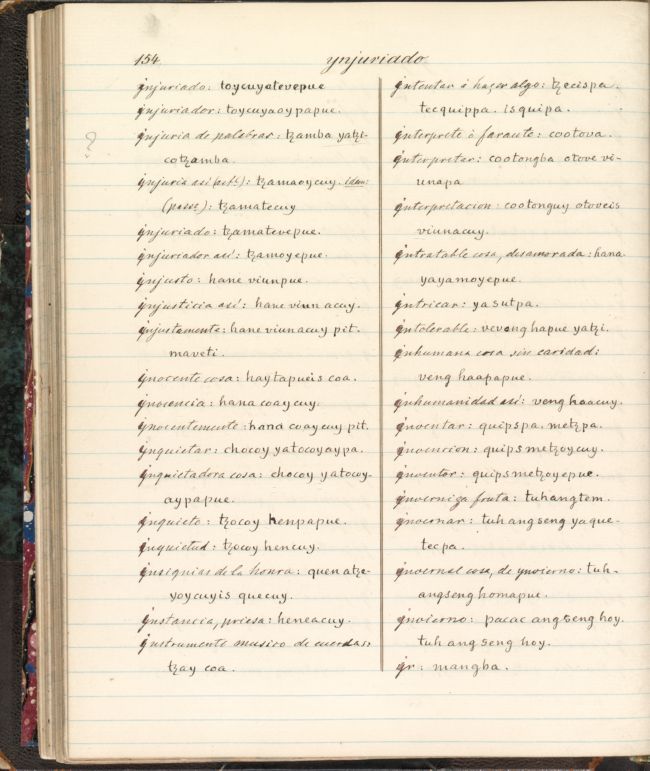 154
ynjuriado
ynjuriado: toycuyatevepue
ynjuriador: toycuyaoypapue.
?
ynjuria de palabras: tzamba yatzi-
cotzamba.
ynjuria asi (act.ª): tzamaoycuy. idem:
(passe): tzamatecuy
ynjuriado: tzamatevepue.
ynjuriador así: tzamoyepue.
ynjusto: hane viunpue.
ynjusticia así: hane viun acuy.
ynjustamente: hane viunacuy pit.
maveti.
ynocente cosa: haytapueis coa.
ynocencia: hana coaycuy.
ynocentemente: hana coaycuy pit.
ynquietar: chocoy yatocoyaypa.
ynquietadora cosa: chocoy yatocoy-
aypapue.
ynquieto: tzocoy henpapue.
ynquietud: tzocoy hencuy.
ynsignias de la honra: quen atze-
yoycuyis quecuy.
ynstancia, priesa: heneacuy.
ynstrumento musico de cuerdas:
tzay coa.
yntentar ò hazer algo: tzecispa.
tecquippa. isquipa.
ynterprete ò faraute: cootova.
ynterpretar: cootongba otove vi-
unapa
ynterpretacion: cootonguy otoveis
viunacuy.
yntratable cosa, desamorada: hana
yayamoyepue.
yntricar: yasutpa.
yntolerable: veveng hapue yatzi.
ynhumana cosa sin caridad:
veng haapapue.
ynhumanidad así: venghaacuy.
ynventar: quipspa. metzpa.
ynvencion: quips metzoycuy.
ynventor: quipsmetzoyepue.
ynverniza fruta: tuhangtem.
ynvernar: tuh angseng yaque-
tecpa.
ynvernal cosa, de ynvierno: tuh-
angseng homapue.
ynvierno: pacac angseng hoy.
tuh ang seng hoy.
yr: mangba.